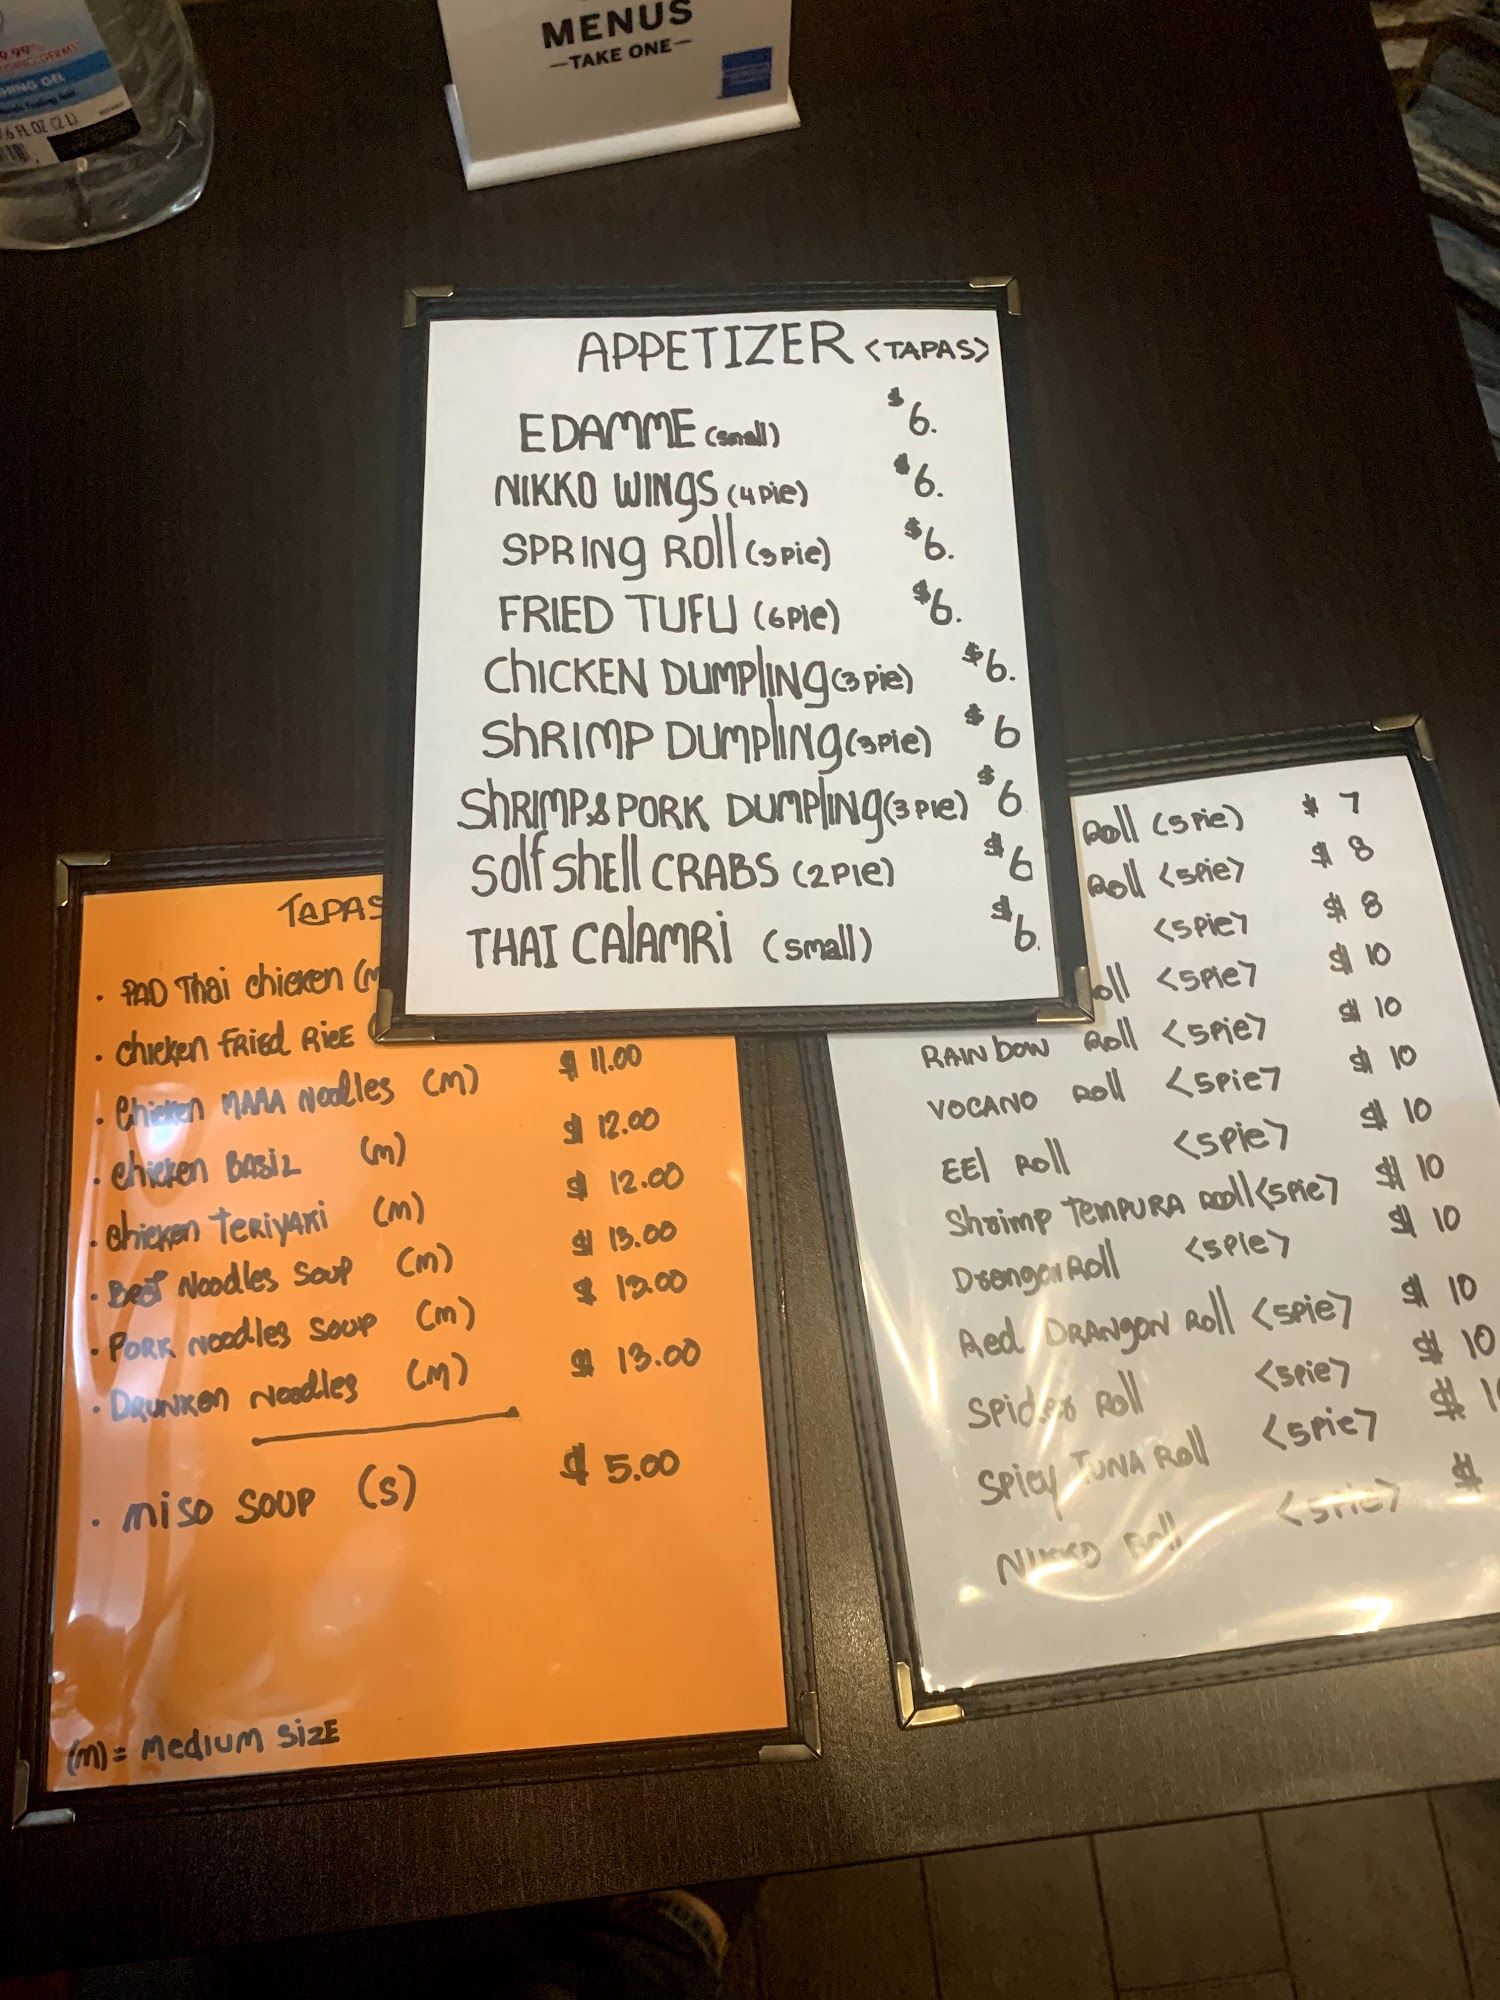 MENUS
—TAKE ONE—
HING GEL
(2 L)
APPETIZER <TAPAS>
EDAMME (small) $6.
NIKKO WINGS (4 PIE) $6.
SPRING ROll (3 PIE) $6.
FRIED TUFU (6 PIE) $6.
CHICKEN DUMPlING (3 PIE) $6.
ShRIMP DUMPlING (3 PIE) $6
ShRIMP & PORK DUMPlING (3 PIE) $6
Solf Shell CRABS (2 PIE) $6
THAI CAlAMRi (small) $6.
TAPAS
• PAD Thai chicken (m
• chicken FRied RicE
• chicken MAMA Noodles (m) $ 11.00
• chicken BASIL (m) $ 12.00
• chicken TERiYAKi (m) $ 12.00
• Beef Noodles Soup (m) $ 13.00
• PORK Noodles Soup (m) $ 13.00
• DRUNKEN Noodles (m) $ 13.00
• miso Soup (S) $ 5.00
(m) = medium size
Roll (5 PIE) $ 7
Roll <5 PIE> $ 8
<5 PIE> $ 8
oll <5 PIE> $ 10
RAINBOW Roll <5 PIE> $ 10
VOCANO Roll <5 PIE> $ 10
EEl Roll <5 PIE> $ 10
Shrimp TEMPURA Roll <5 PIE> $ 10
Drangon Roll <5 PIE> $ 10
Red DRANGON Roll <5 PIE> $ 10
Spider Roll <5 PIE> $ 10
Spicy TUNA Roll <5 PIE> $ 1
NIKKO Roll <5 PIE> $